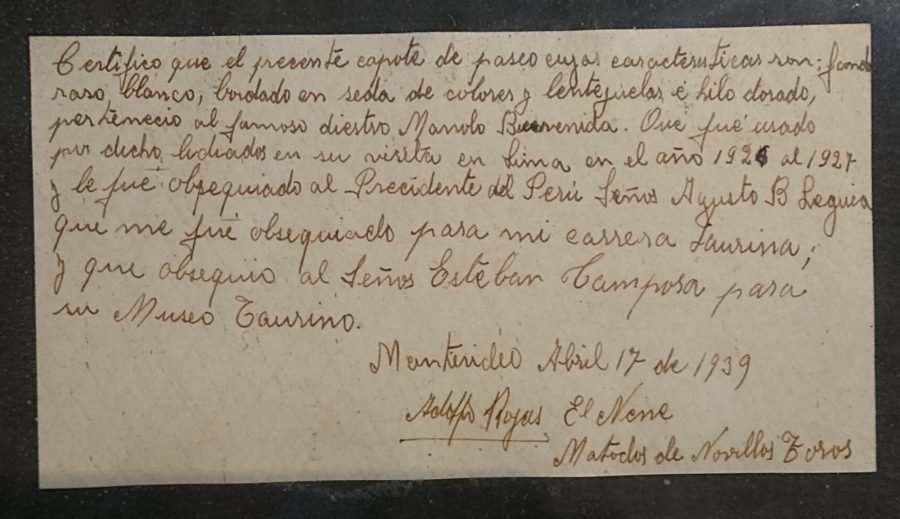 Certifico que el precente capote de paseo cuyas caracteristicas son: fondo
raso, blanco, bordado en seda de colores y lentejuelas é hilo dorado,
pertenecio al famoso diestro Manolo Bienvenida. Que fué usado
por dicho lidiador en su visita en Lima en el año 1926 al 1927
y le fué obsequiado al Precidente del Perú Señor Agusto B Leguia
que me fué obsequiado para mi carrera Taurina;
y que obsequio al Señor Esteban Campora para
su Museo Taurino.
Montevideo Abril 17 de 1939
Adolfo Rojas El Nene
Matador de Novillos Toros